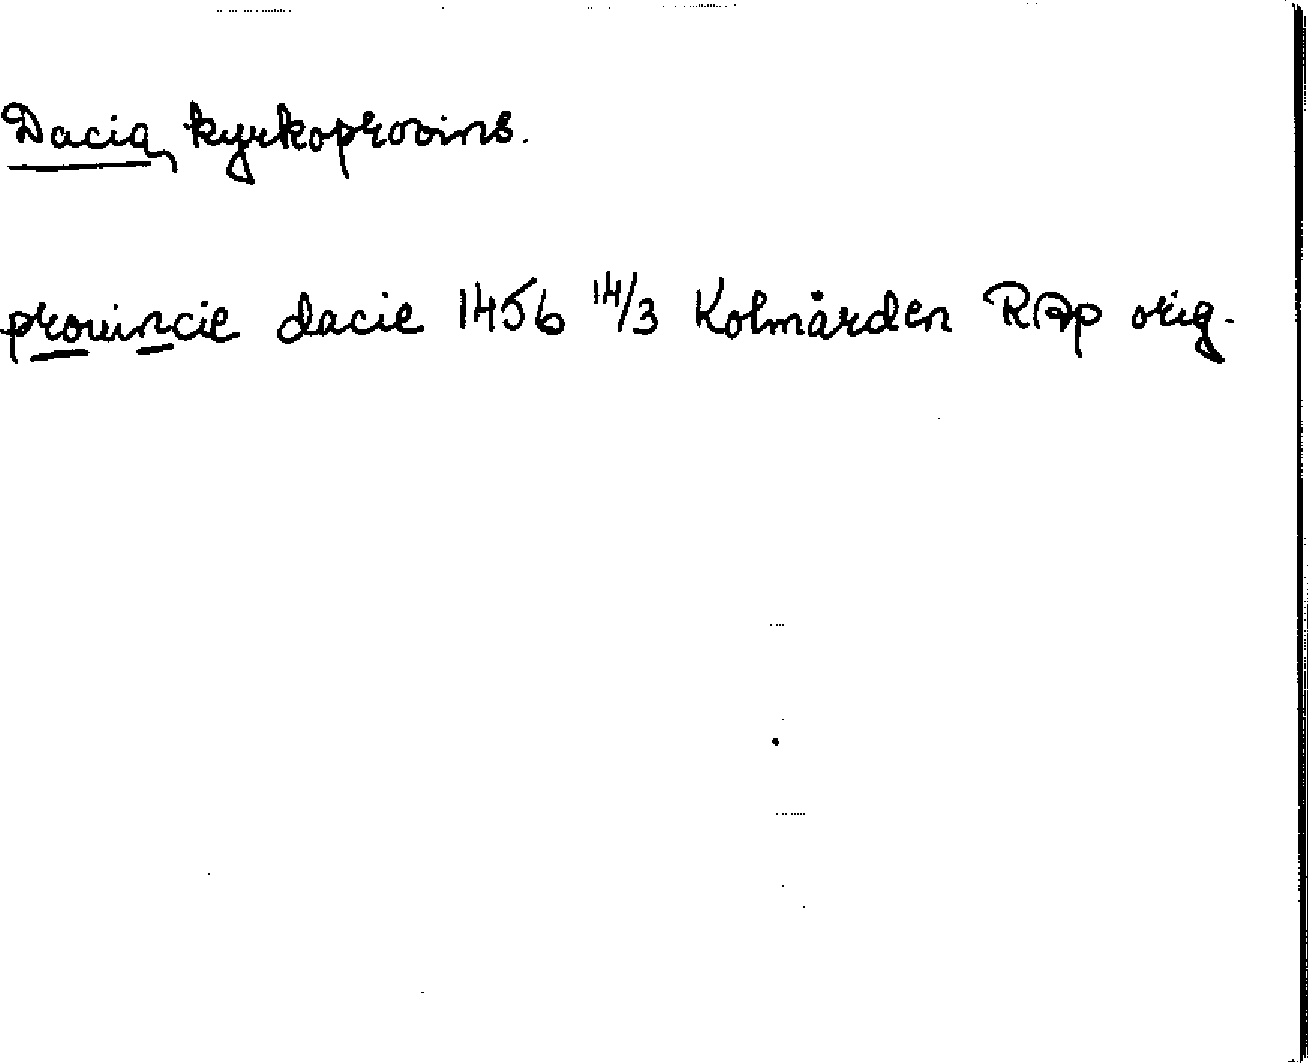 Dacia, kyrkoprovins.
prouincie dacie 1456 14/3 Kolmården RAp orig.